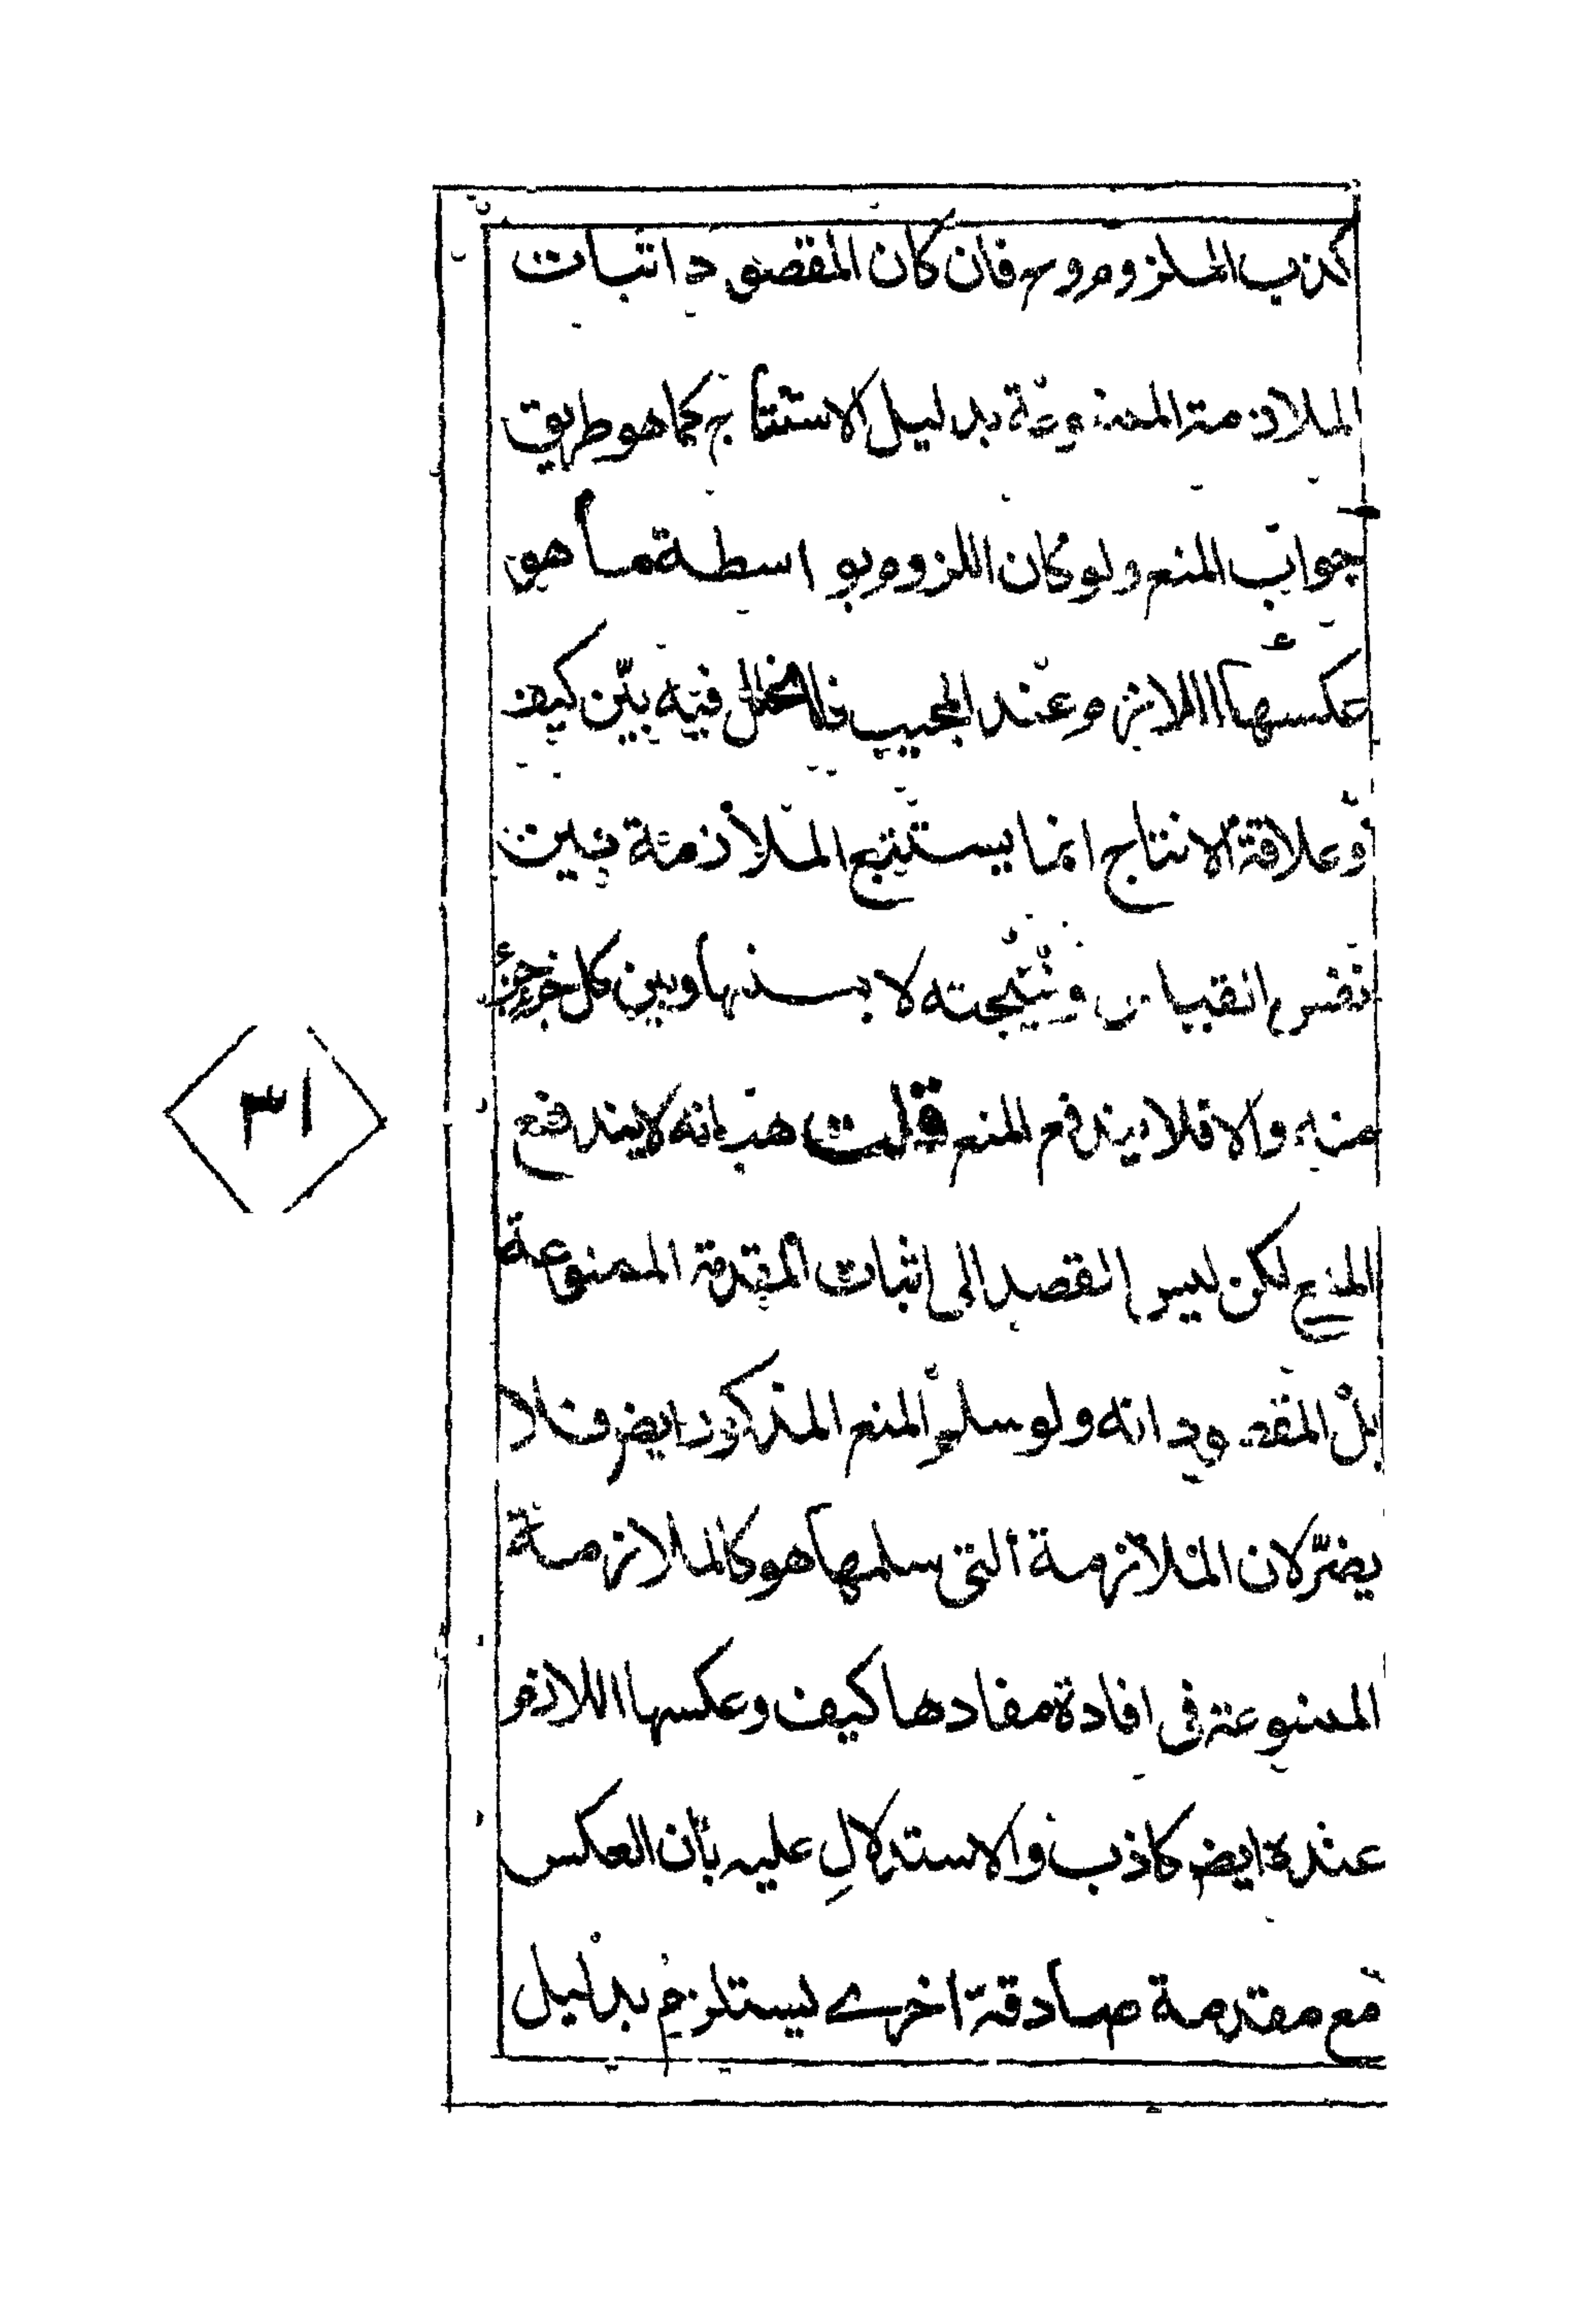 كذب الملزوم وح فان كان المقصود اثبات
الملازمة الممنوعة بدليل الاستنتاج كما هو طريق
جواب المنع ولو كان اللزوم بواسطة ما هو
عكسها اللازم عند المجيب فالخلل فيه بيّن كيف
وعلاقة الانتاج انما يستتبع الملازمة بين
نفس القياس ونتيجته لا بينها وبين كل جزء جزء
منه والا فلا يندفع المنع قلت هب انه لا يندفع
المنع لكن ليس القصد الى اثبات المقدمة الممنوعة
بل المقصود انه ولو سلم المنع المذكور ايض فلا
يضرّ لان الملازمة التى سلمها هو كالملازمة
الممنوعة فى افادة مفادها كيف وعكسها اللازم
عنده ايض كاذب والاستدلالِ عليه بان العكس
مع مقدمة صادقة اخرے يستلزم بدليل
٣١